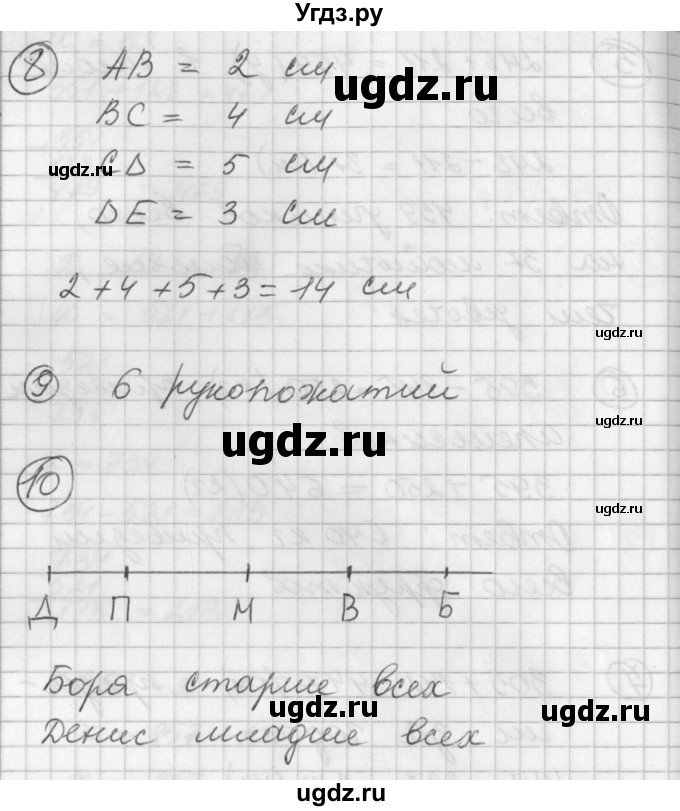 Угдз.ру
⑧ AB = 2 см
ugdz.ru
BC = 4 см
ugdz.ru
CD = 5 см
DE = 3 см
2 + 4 + 5 + 3 = 14 см
ugdz.ru
⑨ 6 рукопожатий
ugdz.ru
ugdz.ru
⑩
Д П М В Б
Боря старше всех
ugdz.ru
ugdz.ru
Денис младше всех
ugdz.ru